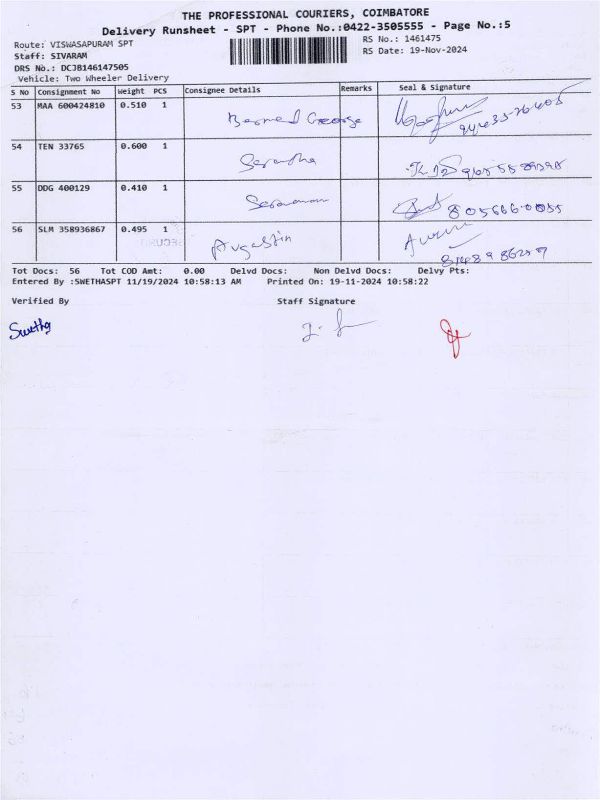 THE PROFESSIONAL COURIERS, COIMBATORE
Delivery Runsheet - SPT - Phone No.:0422-3505555 - Page No.:5
Route: VISWASAPURAM SPT
RS No.: 1461475
Staff: SIVARAM
RS Date: 19-Nov-2024
DRS No.: DCJB146147505
Vehicle: Two Wheeler Delivery
S No Consignment No Weight PCS Consignee Details Remarks Seal & Signature
53 MAA 600424810 0.510 1 George
54 TEN 33765 0.600 1
55 DDG 400129 0.410 1 Saravanan
56 SLM 358936867 0.495 1 Augastin
Tot Docs: 56 Tot COD Amt: 0.00 Delvd Docs: Non Delvd Docs: Delvy Pts:
Entered By :SWETHASPT 11/19/2024 10:58:13 AM Printed On: 19-11-2024 10:58:22
Verified By Staff Signature
Swetha